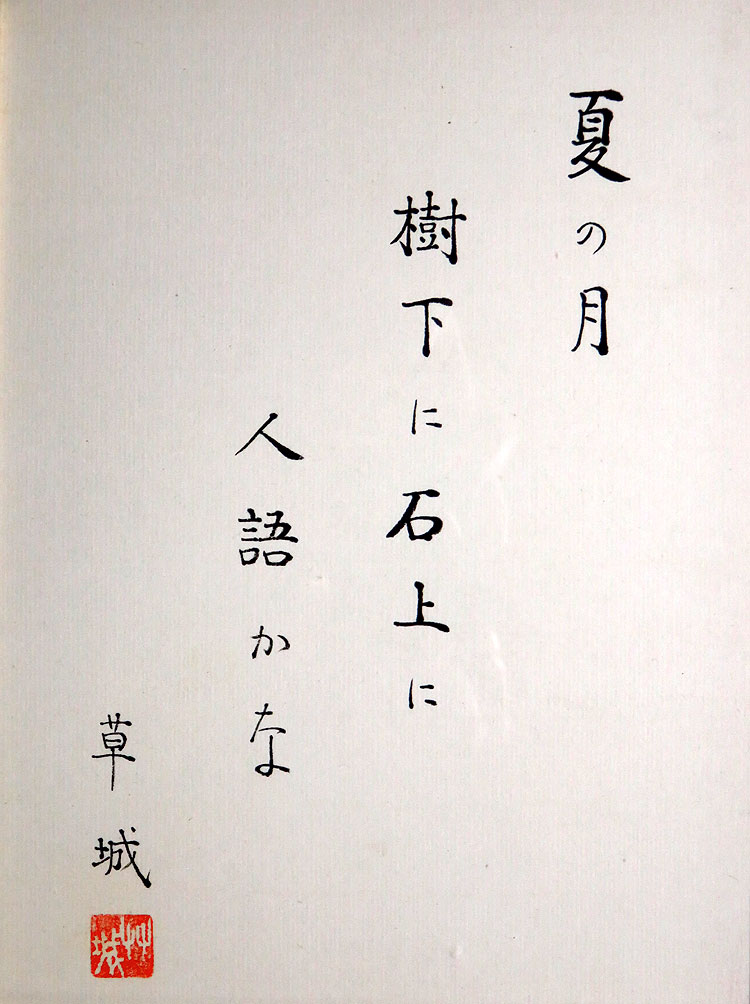 夏の月
樹下に石上に
人語かな
草城
艸城